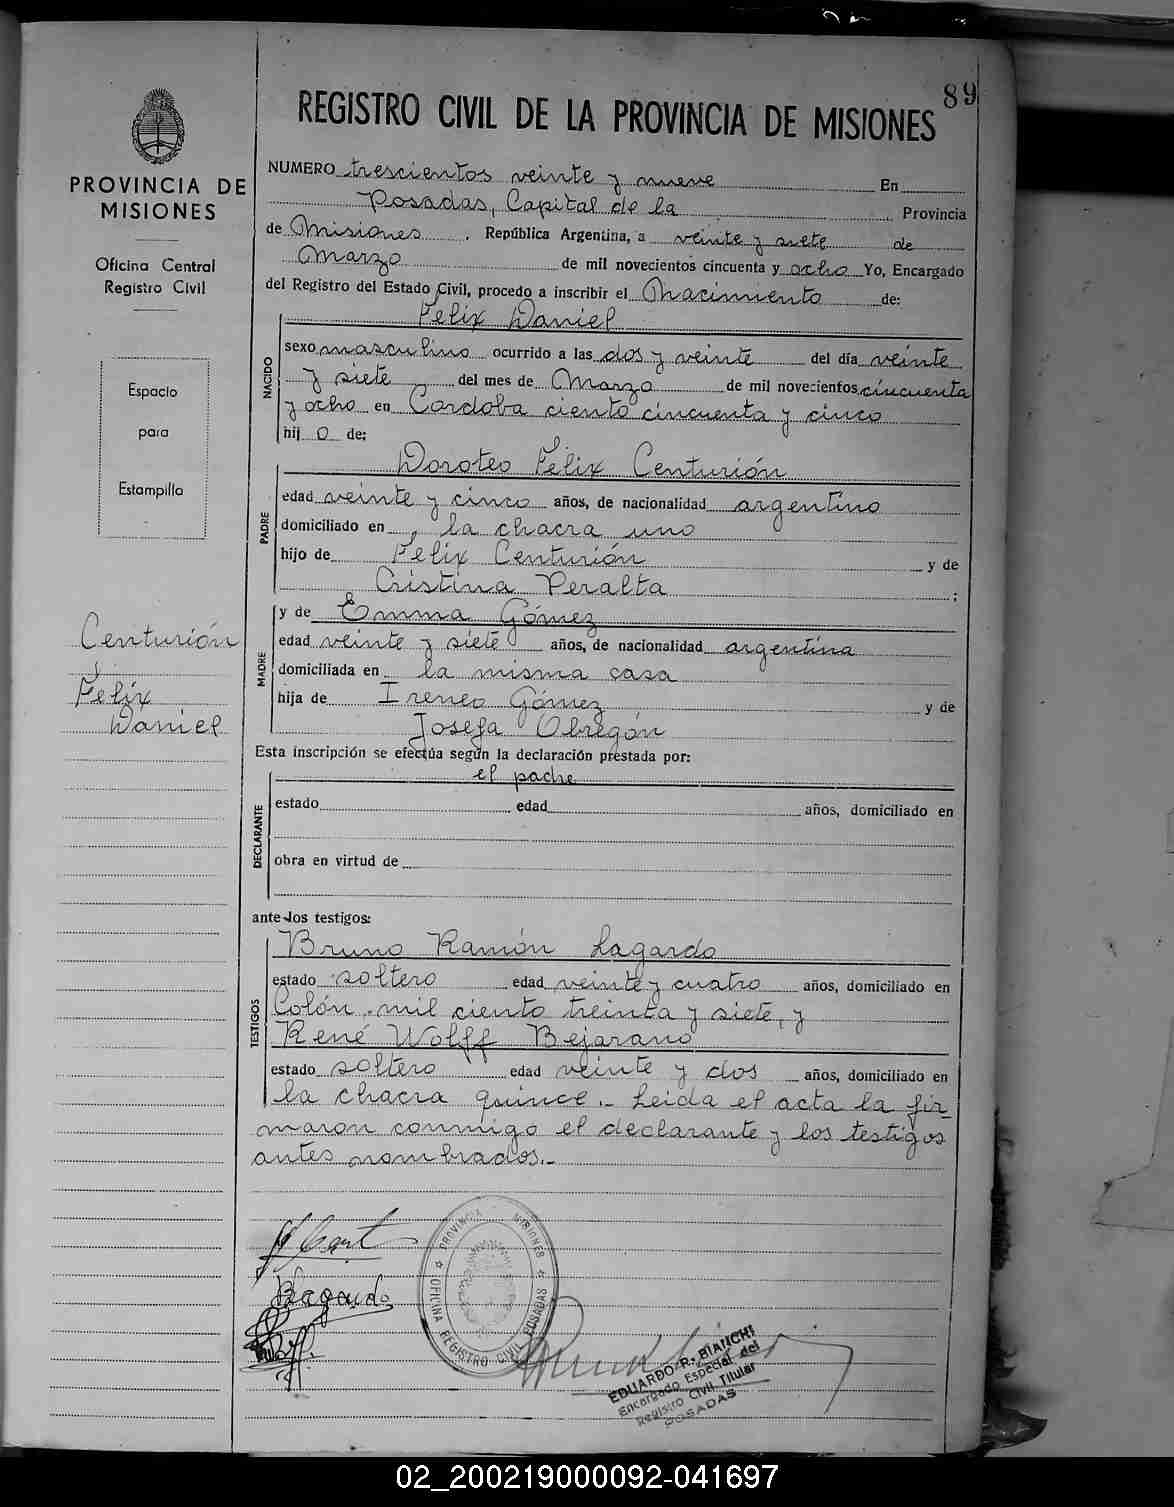 89
REGISTRO CIVIL DE LA PROVINCIA DE MISIONES
PROVINCIA DE
MISIONES
Oficina Central
Registro Civil
Espacio
para
Estampilla
Centurión
Felix
Daniel
NUMERO trescientos veinte y nueve En
Posadas, Capital de la Provincia
de Misiones. República Argentina, a veinte y siete de
Marzo de mil novecientos cincuenta y ocho Yo, Encargado
del Registro del Estado Civil, procedo a inscribir el Nacimiento de:
Felix Daniel
NACIDO
sexo masculino ocurrido a las dos y veinte del día veinte
y siete del mes de Marzo de mil novecientos cincuenta
y ocho en Cordoba ciento cincuenta y cinco
hij o de:
Doroteo Felix Centurión
PADRE
edad veinte y cinco años, de nacionalidad argentino
domiciliado en la chacra uno
hijo de Felix Centurión y de
Cristina Peralta ;
y de Emma Gómez
MADRE
edad veinte y siete años, de nacionalidad argentina
domiciliada en la misma casa
hija de Ireneo Gómez y de
Josefa Obregón
Esta inscripción se efectúa según la declaración prestada por:
el padre
DECLARANTE
estado edad años, domiciliado en
obra en virtud de
ante los testigos:
Bruno Ramón Lagardo
TESTIGOS
estado soltero edad veinte y cuatro años, domiciliado en
Colón mil ciento treinta y siete, y
René Wolff Bejarano
estado soltero edad veinte y dos años, domiciliado en
la chacra quince.- Leida el acta la fir_
maron conmigo el declarante y los testigos
antes nombrados.-
PROVINCIA MISIONES
OFICINA REGISTRO CIVIL POSADAS
EDUARDO R. BIANCHI
Encargado Especial del
Registro Civil Titular
POSADAS
02_200219000092-041697